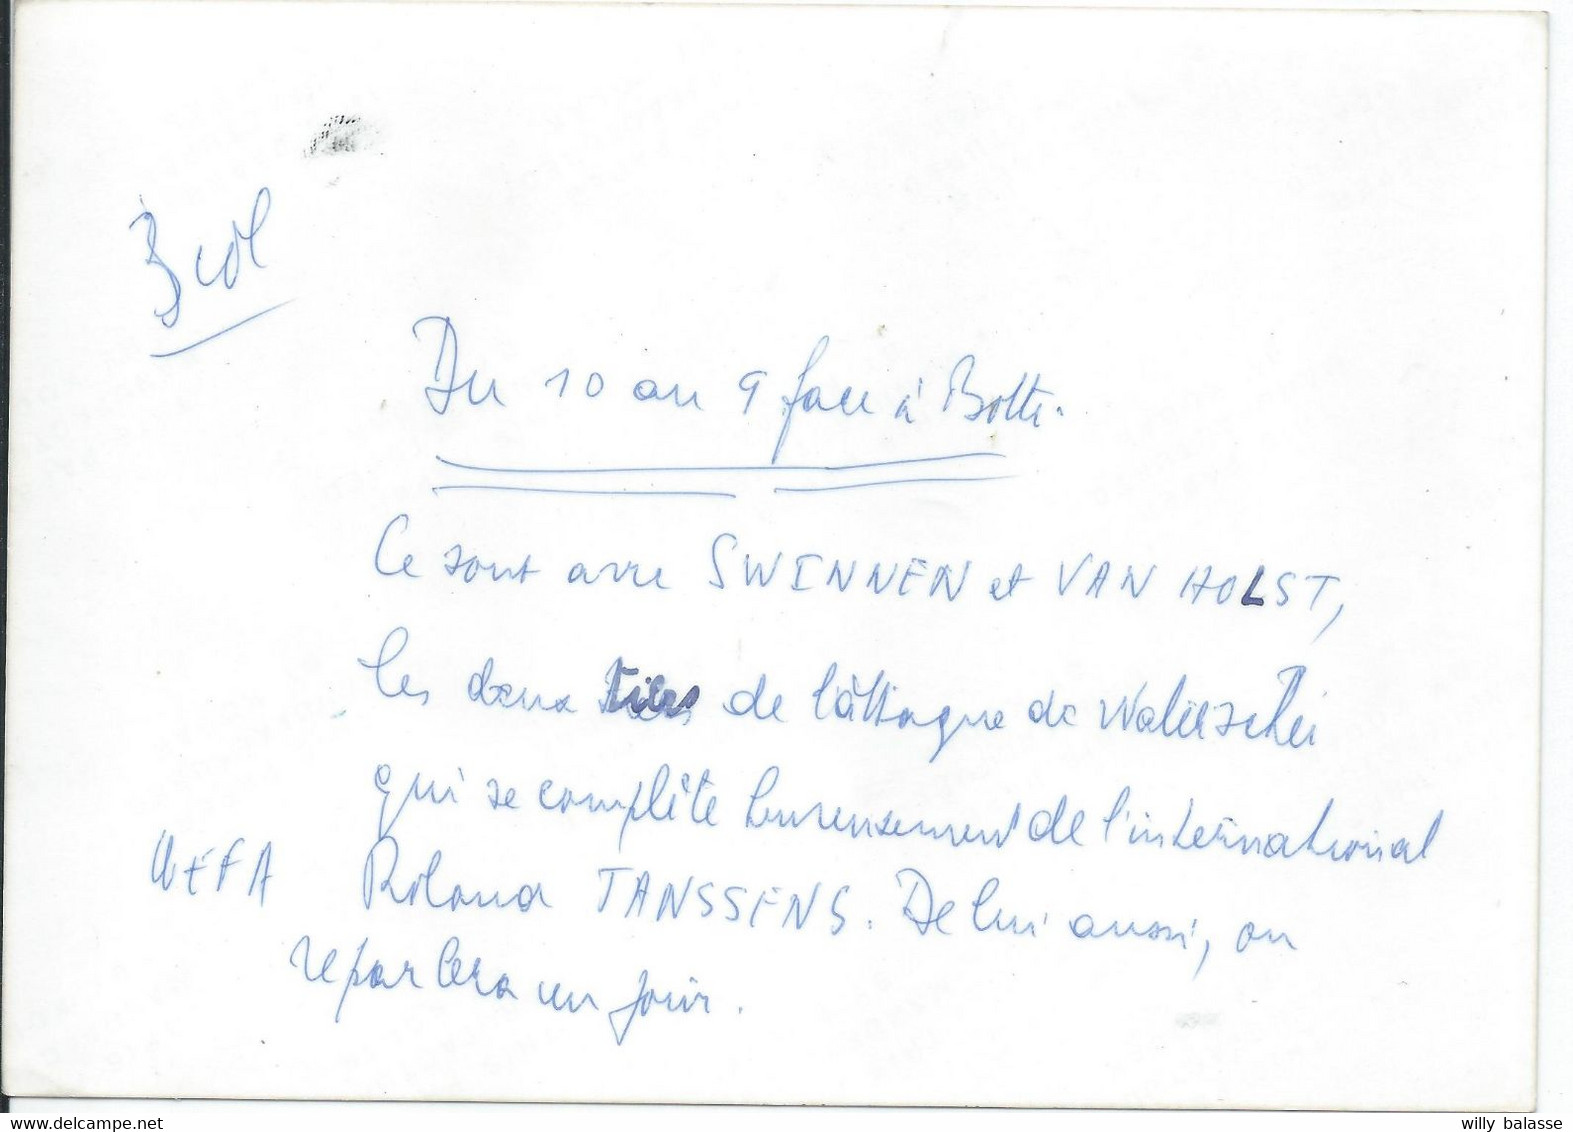 3 col
Du 10 au 9 face à Botte.
Ce sont avec SWINNEN et VAN HOLST,
les deux de l'attaque de Waterschei
qui se complète heureusement de l'international
Roland JANSSENS. De lui aussi, on
reparlera un jour.
WEFA
www.delcampe.net
willy balasse